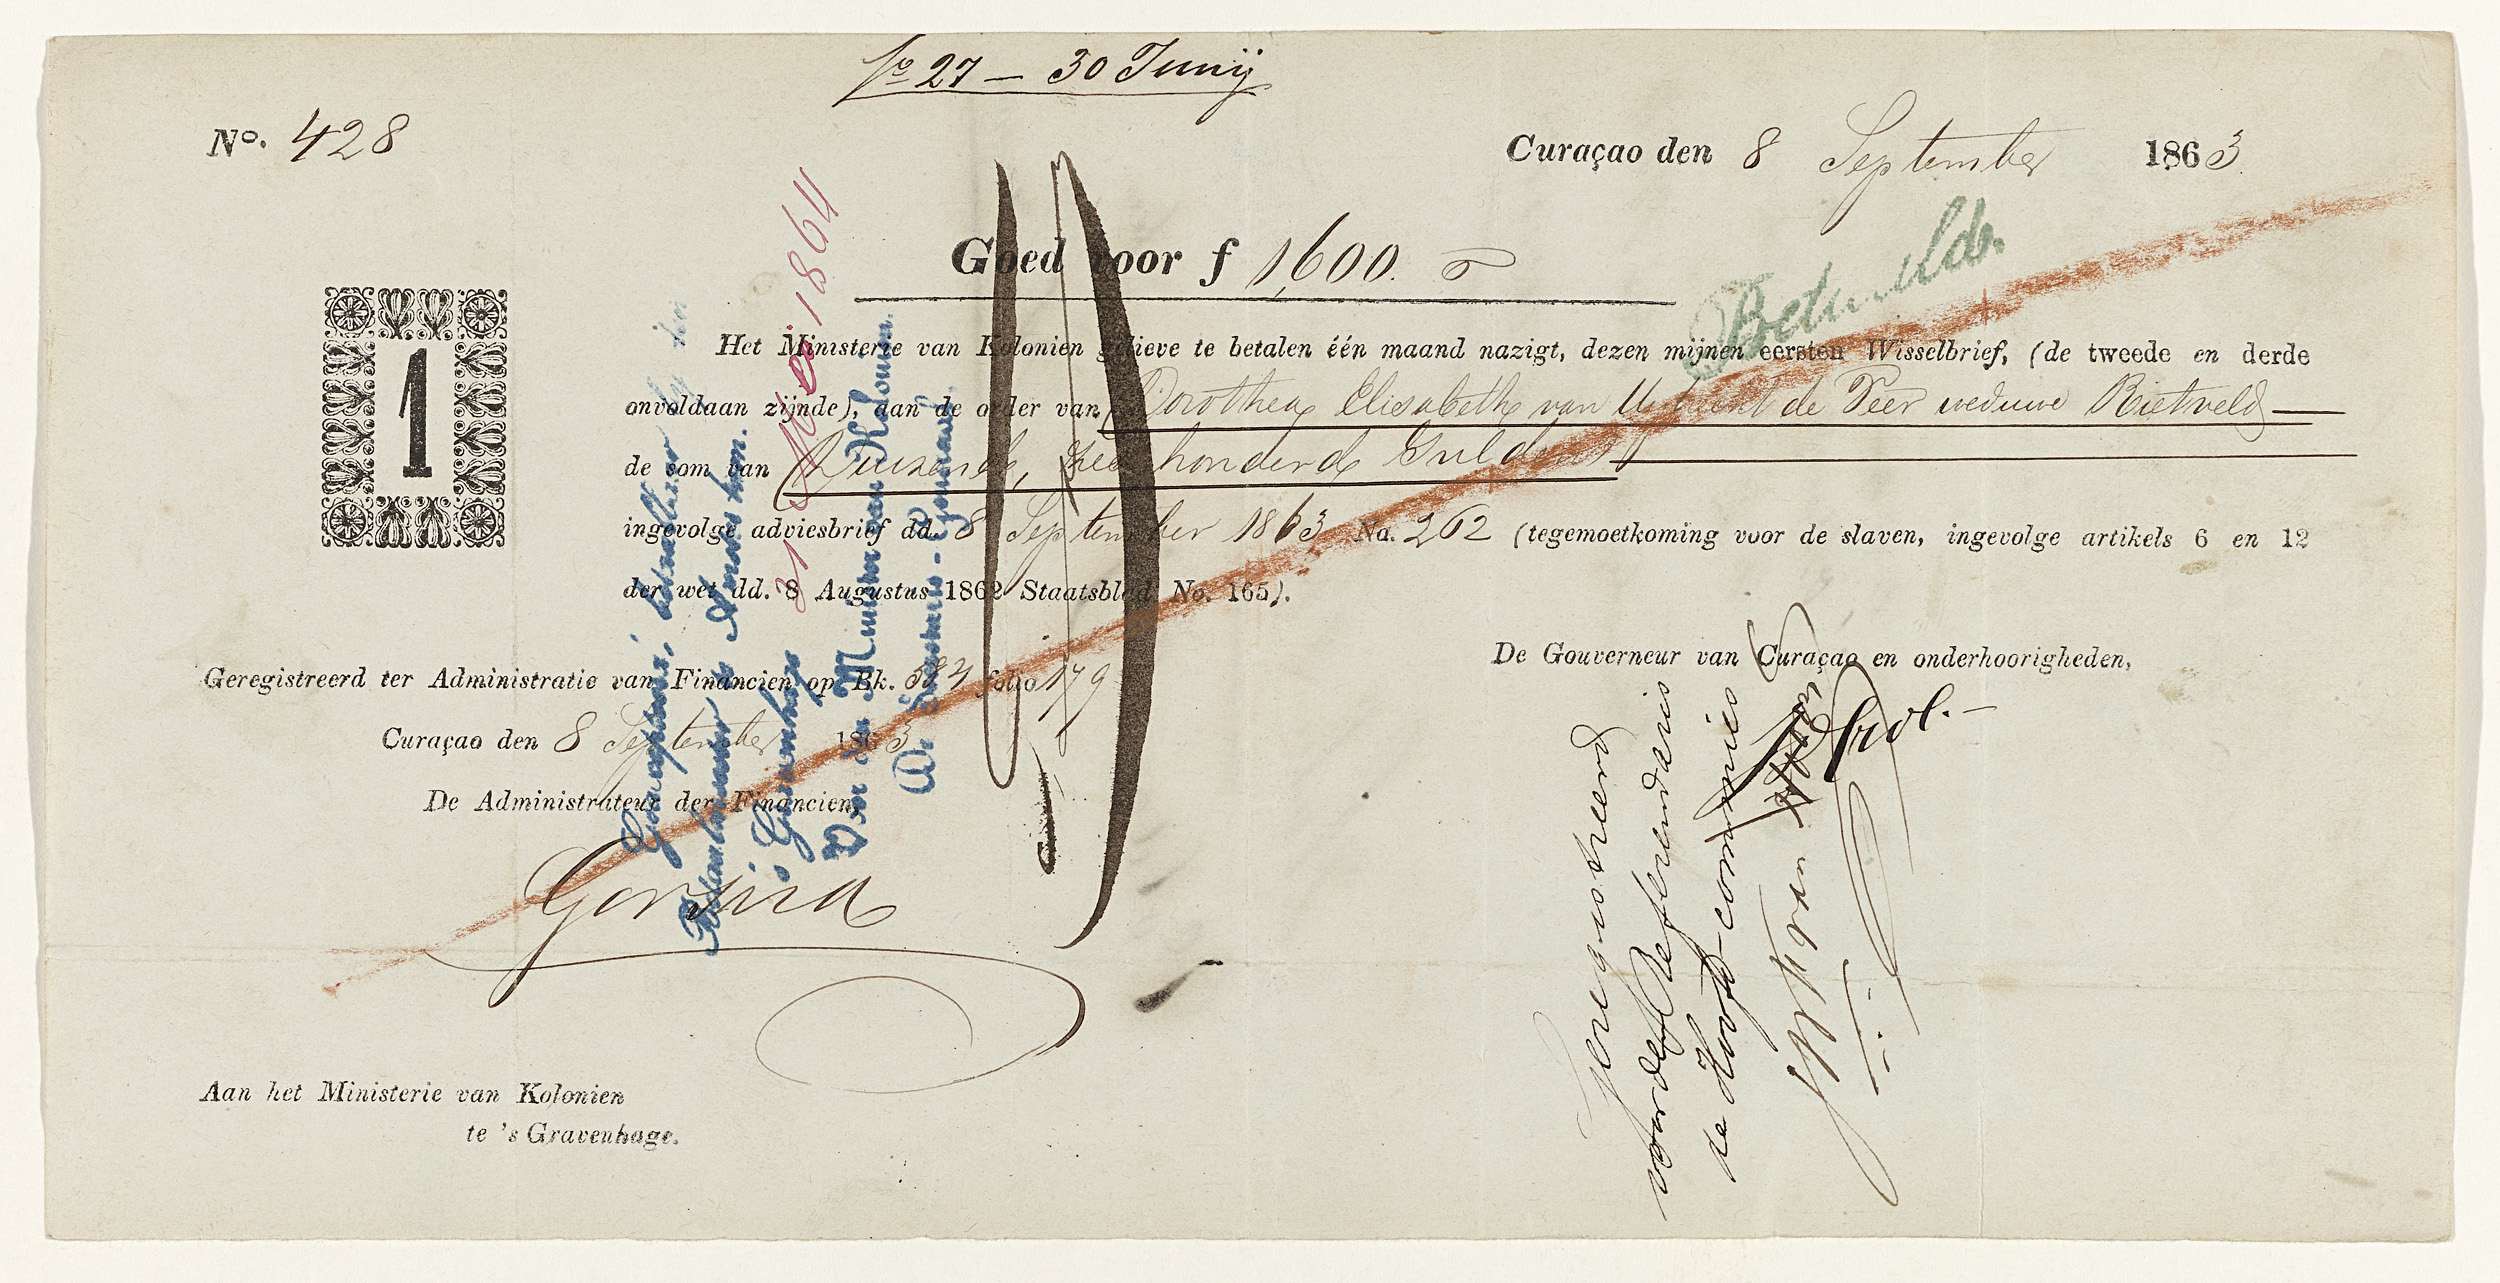 fo 27 — 30 Junij
No. 428
Curaçao den 8 September 1863
Goed voor f 1,600.
Betaald.
1
Het Ministerie van Kolonien gelieve te betalen één maand nazigt, dezen mijnen eersten Wisselbrief, (de tweede en derde
onvoldaan zijnde), aan de order van Dorothea Elisabeth van Utrecht de Veer weduwe Rietveld
de som van Duizend, Zeshonderd Gulden
ingevolge adviesbrief dd. 8 September 1863 No. 262 (tegemoetkoming voor de slaven, ingevolge artikels 6 en 12
der wet dd. 8 Augustus 1862 Staatsblad No. 165).
Geregistreerd ter Administratie van Financien op Bk. 584 folio 179
Curaçao den 8 September 1863
De Administrateur der Financien,
Gorsira
De Gouverneur van Curaçao en onderhoorigheden,
Crol.
Geaccepteerd, betaalbaar bij den
Betaalmeester te Amsterdam.
's Gravenhage 31 1864
Voor den Minister van Kolonien.
De Secretaris-Generaal,
Geregistreerd
voor de Referendaris
de Hoofd-commies
van
Aan het Ministerie van Kolonien
te 's Gravenhage.